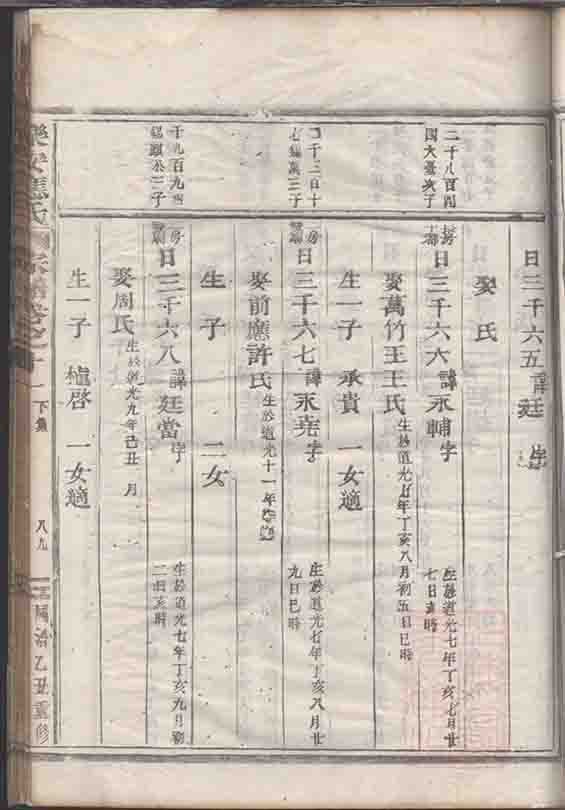 日三千六五諱廷字
娶氏
二千八百
日三千六六諱永輔字
生於道光七年丁亥七月廿
七日亥時
娶萬竹王王氏生於道光七年丁亥八月初五日巳時
生一子承貴一女適
日三千六七諱永堯字
生於道光七年丁亥八月廿
九日巳時
娶前應許氏生於道光十一年
生子二女
日三千六八諱廷當字
生於道光七年丁亥九月初
二日亥時
娶周氏生於道光九年己丑月
生一子植啓一女適
下集
八九
同治乙丑重修